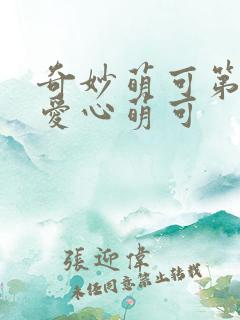 奇妙萌可第
爱心萌可
張迎偉
未经同意禁止转载